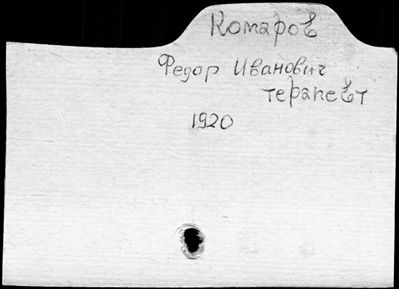 Комаров
Федор Иванович
терапевт
1920